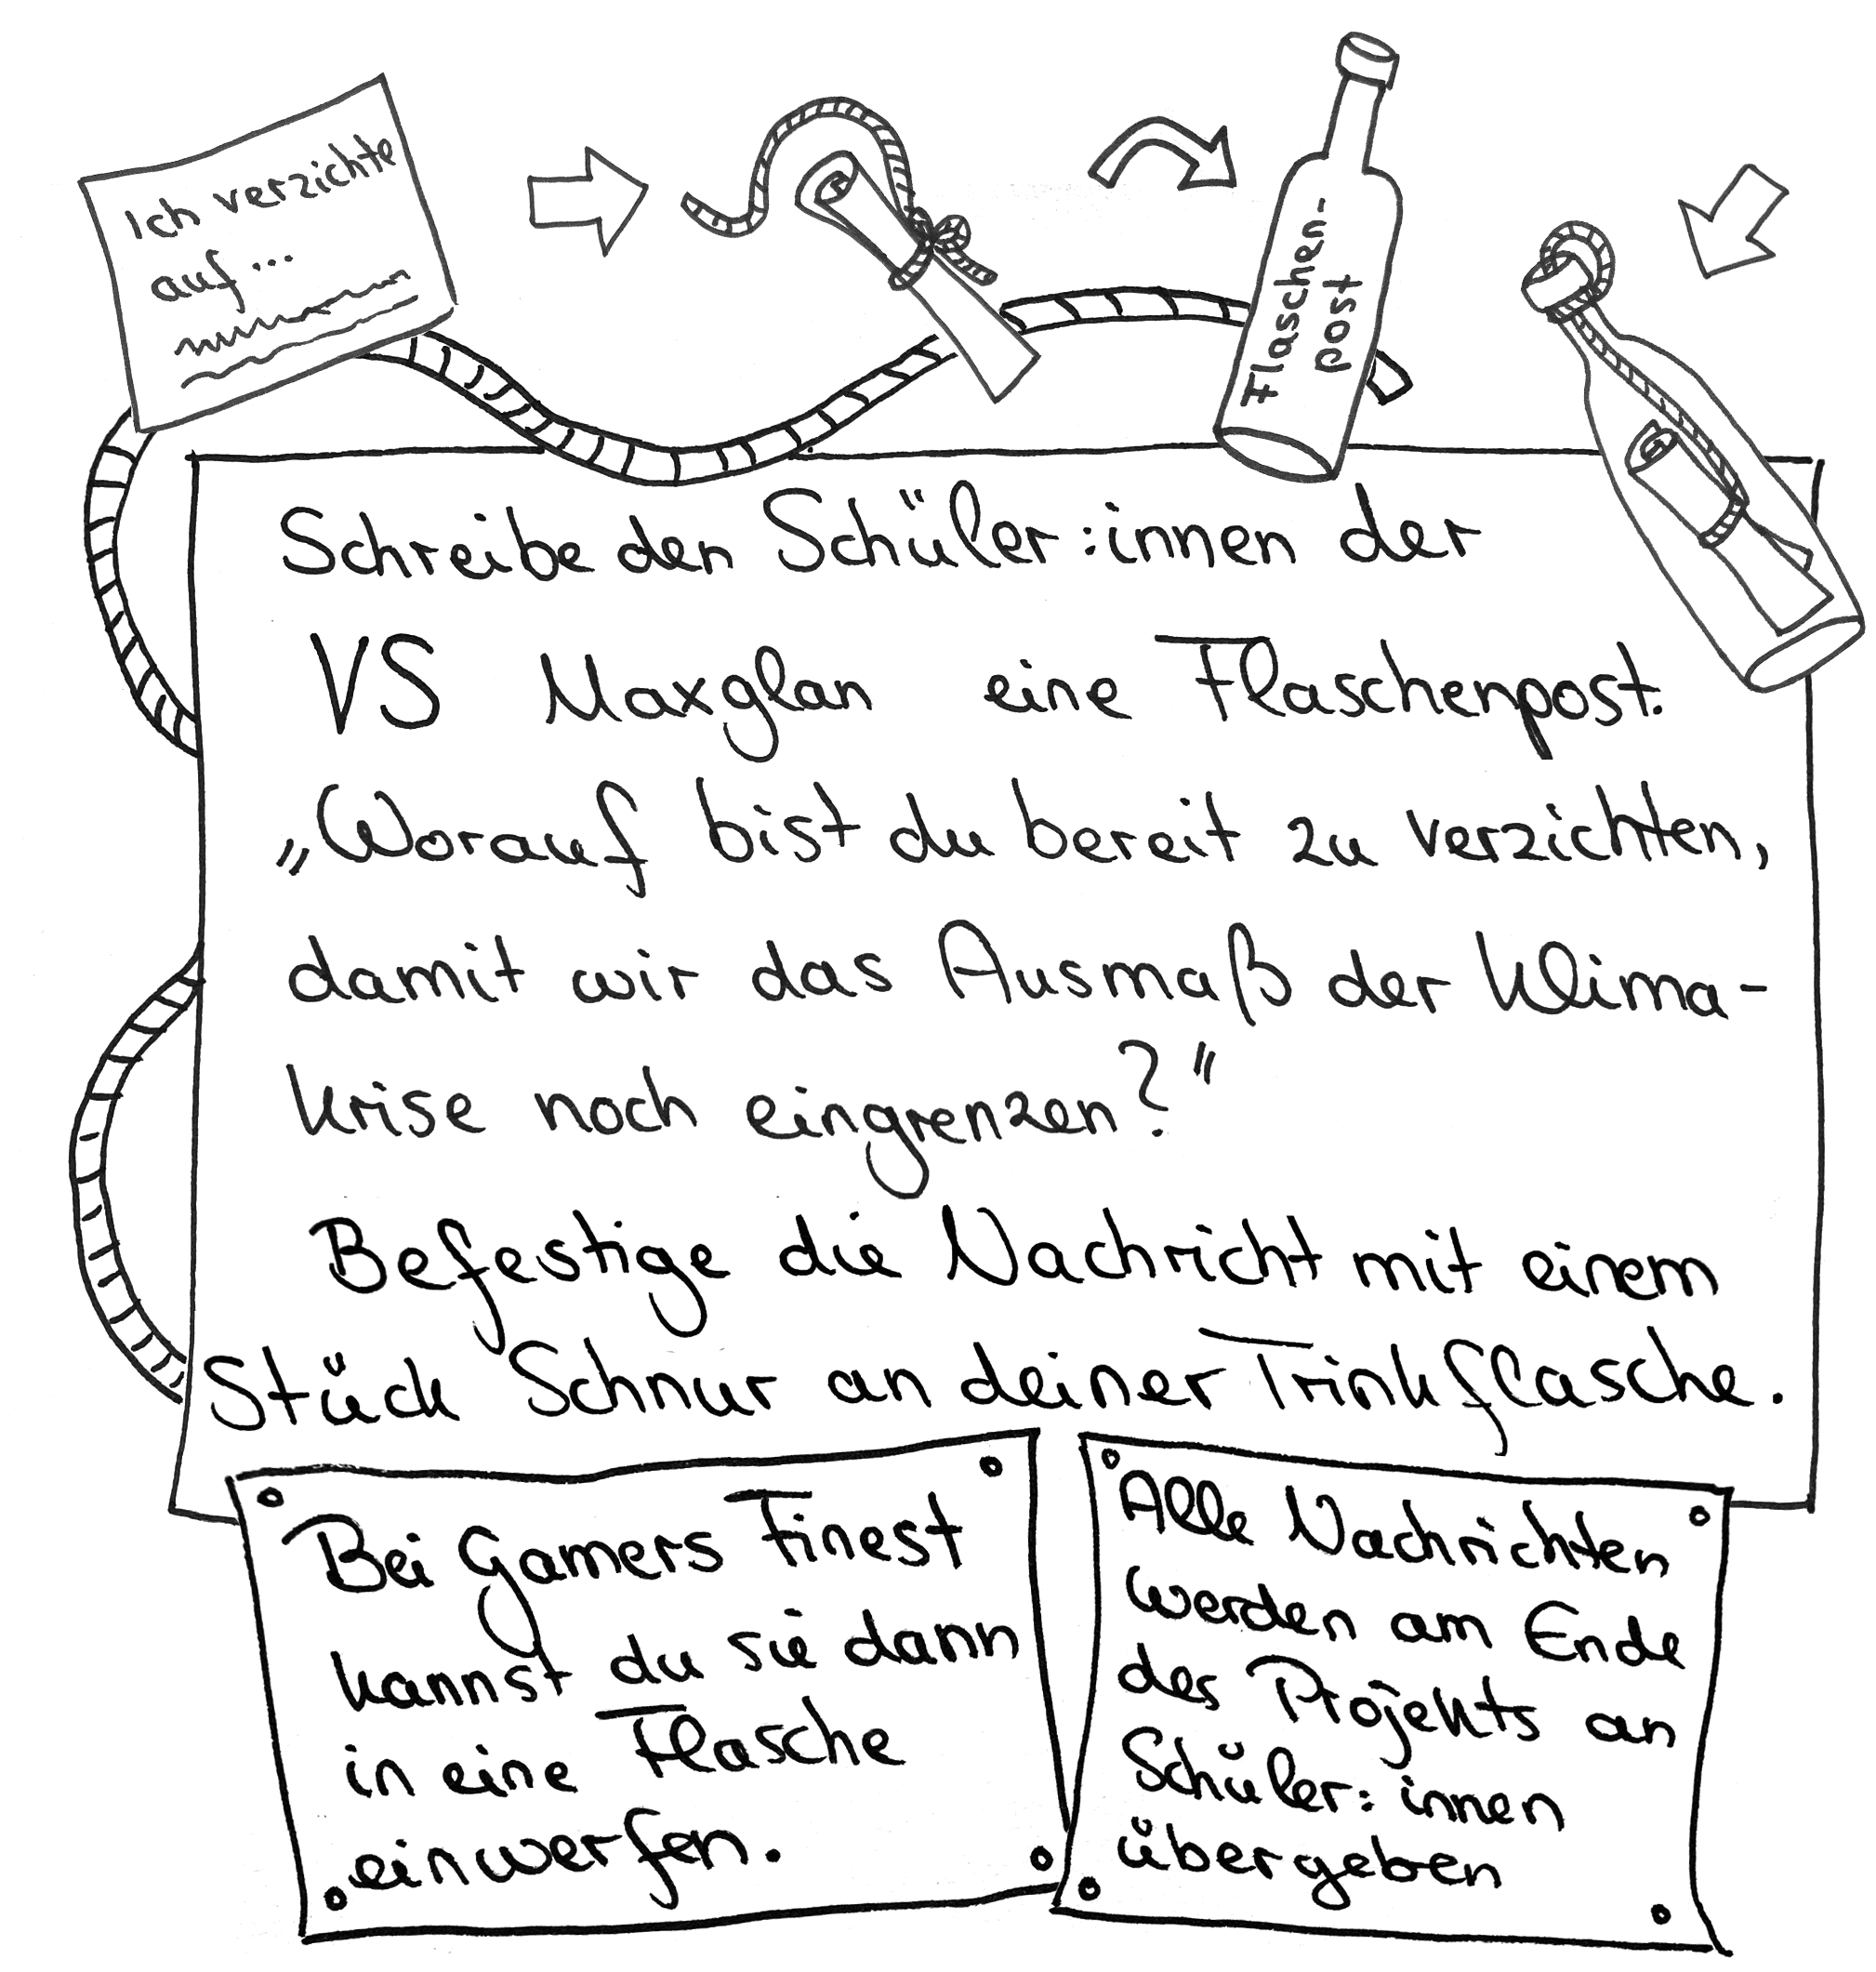 Ich verzichte
auf...
Flaschen-
post
Schreibe den Schüler:innen der
VS Maxglan eine Flaschenpost.
„Worauf bist du bereit zu verzichten,
damit wir das Ausmaß der Klima-
krise noch eingrenzen?"
Befestige die Nachricht mit einem
Stück Schnur an deiner Trinkflasche.
Bei Gamers Finest
kannst du sie dann
in eine Flasche
einwerfen.
Alle Nachrichten
werden am Ende
des Projekts an
Schüler:innen
übergeben